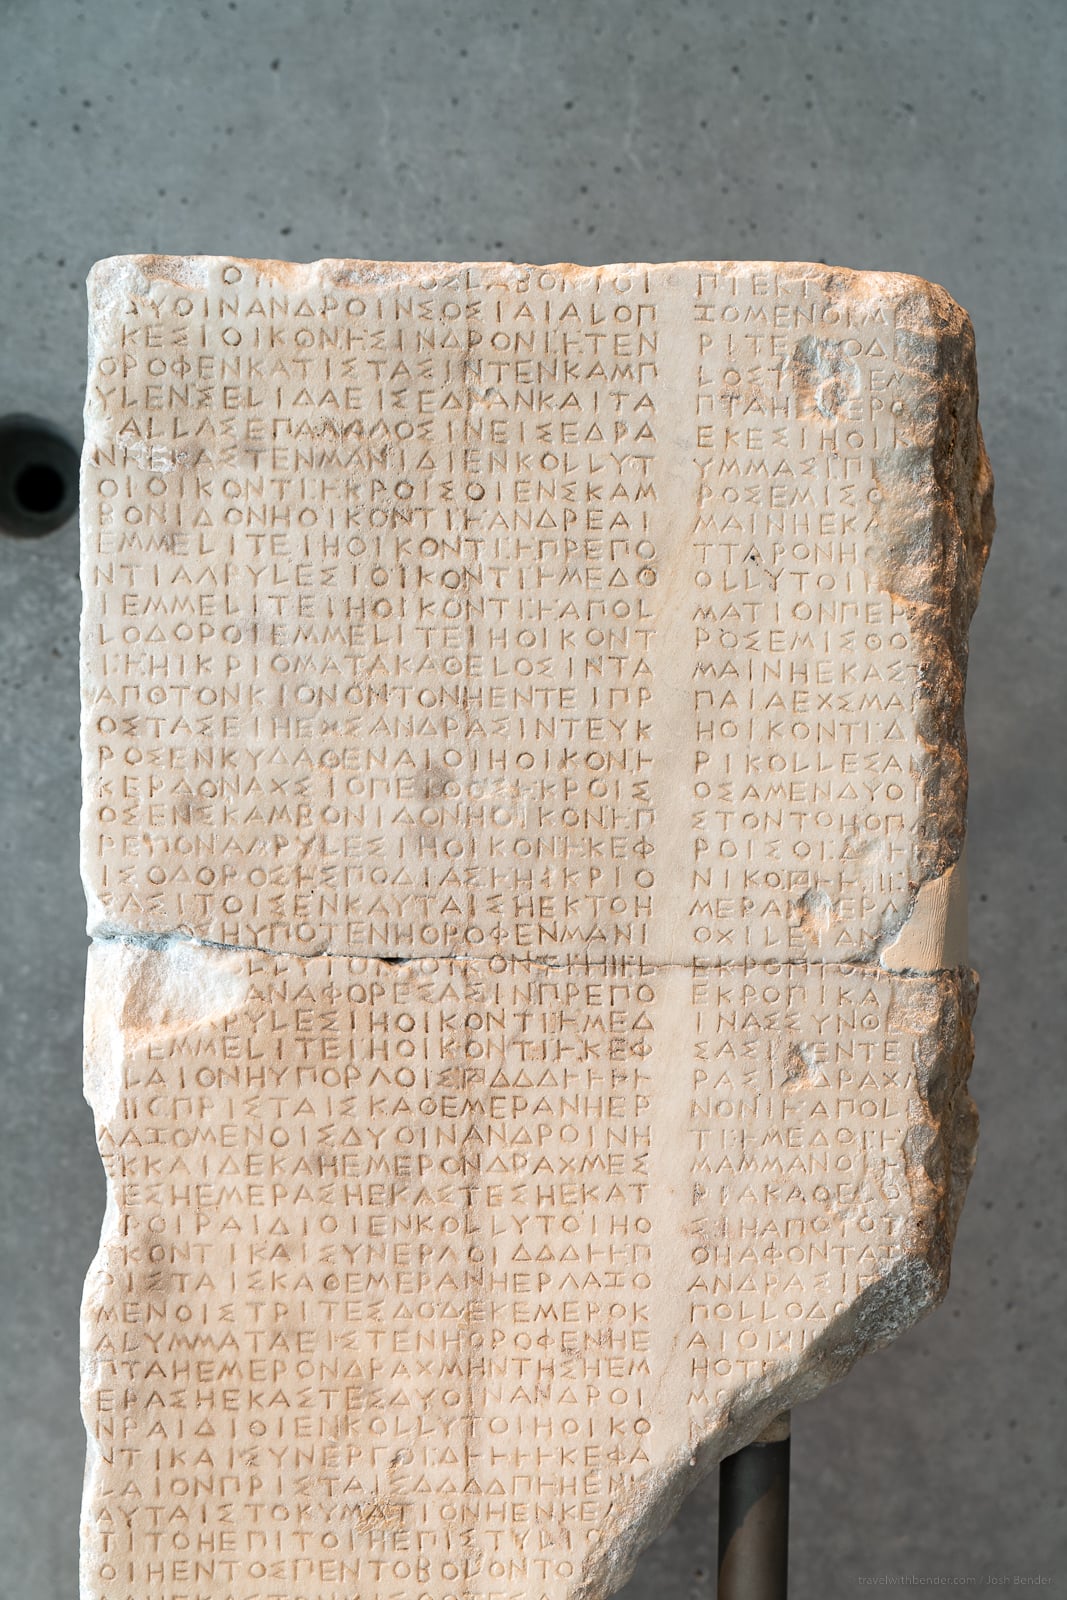 ΟΣΛΑΒΟΝΤΙΟΙ
ΔΥΟΙΝΑΝΔΡΟΙΝΣΟΣΙΑΙΑΛΟΠ
ΚΕΣΙΟΙΚΟΝ⊢ΣΙΝΔΡΟΝΙ:⊢ΤΕΝ
ΟΡΟΦΕΝΚΑΤΙΣΤΑΣΙΝΤΕΝΚΑΜΠ
ΥΛΕΝΣΕΛΙΔΑΕΙΣΕΔΡΑΝΚΑΙΤΑ
ΑΛΛΑΣΕΠΑΛΛΛΟΣΙΝΕΙΣΕΔΡΑ
ΝΗΕΚΑΣΤΕΝΜΑΝΙΔΙΕΝΚΟΛΛΥΤ
ΟΙΟΙΚΟΝΤΙ:⊢ΚΡΟΙΣΟΙΕΝΣΚΑΜ
ΒΟΝΙΔΟΝΗΟΙΚΟΝΤΙ⊢ΑΝΔΡΕΑΙ
ΕΜΜΕΛΙΤΕΙΗΟΙΚΟΝΤΙ:⊢ΠΡΕΠΟ
ΝΤΙΑΓΡΥΛΕΣΙΟΙΚΟΝΤΙ:⊢ΜΕΔΟ
ΙΕΜΜΕΛΙΤΕΙΗΟΙΚΟΝΤΙ:⊢ΑΠΟΛ
ΛΟΔΟΡΟΙΕΜΜΕΛΙΤΕΙΗΟΙΚΟΝΤ
Ι:⊢ΗΙΚΡΙΟΜΑΤΑΚΑΘΕΛΟΣΙΝΤΑ
ΑΠΟΤΟΝΚΙΟΝΟΝΤΟΝΗΕΝΤΕΙΠΡ
ΟΣΤΑΣΕΙΗΕΧΣΑΝΔΡΑΣΙΝΤΕΥΚ
ΡΟΣΕΝΚΥΔΑΘΕΝΑΙΟΙΗΟΙΚΟΝ⊢
ΚΕΡΔΟΝΑΧΣΙΟΠΕΙΘΟΣ:⊢ΚΡΟΙΣ
ΟΣΕΝΣΚΑΜΒΟΝΙΔΟΝΗΟΙΚΟΝ⊢Π
ΡΕΠΟΝΑΓΡΥΛΕΣΙΗΟΙΚΟΝ⊢ΚΕΦ
ΙΣΟΔΟΡΟΣ⊢ΣΠΟΔΙΑΣ⊢ΗΙΚΡΙΟ
ΕΛΣΙΤΟΙΣΕΝΚΑΥΤΑΙΣΗΕΚΤΟΗ
ΟΣΗΥΠΟΤΕΝΗΟΡΟΦΕΝΜΑΝΙ
ΛΛΥΤΟΙΗΟΙΚΟΝΣ
ΑΝΑΦΟΡΕΣΑΣΙΝΠΡΕΠΟ
ΡΥΛΕΣΙΗΟΙΚΟΝΤΙ:⊢ΜΕΔ
ΕΜΜΕΛΙΤΕΙΗΟΙΚΟΝΤΙ:⊢ΚΕΦ
ΛΑΙΟΝΗΥΠΟΡΓΟΙΣ𐅄ΔΔΔ⊢⊢⊢⊢
ΙΙCΠΡΙΣΤΑΙΣΚΑΘΕΜΕΡΑΝΗΕΡ
ΓΑΖΟΜΕΝΟΙΣΔΥΟΙΝΑΝΔΡΟΙΝΗ
ΕΚΚΑΙΔΕΚΑΗΕΜΕΡΟΝΔΡΑΧΜΕΣ
ΤΕΣΗΕΜΕΡΑΣΗΕΚΑΣΤΕΣΗΕΚΑΤ
ΕΡΟΙΡΑΙΔΙΟΙΕΝΚΟΛΛΥΤΟΙΗΟ
ΙΚΟΝΤΙΚΑΙΣΥΝΕΡΓΟΙΔΔΔ⊢⊢Π
ΡΙΣΤΑΙΣΚΑΘΕΜΕΡΑΝΗΕΡΓΑΖΟ
ΜΕΝΟΙΣΤΡΙΤΕΣΔΟΔΕΚΕΜΕΡΟΚ
ΑΛΥΜΜΑΤΑΕΙΣΤΕΝΗΟΡΟΦΕΝΗΕ
ΠΤΑΗΕΜΕΡΟΝΔΡΑΧΜΗΝΤΗΣΗΕΜ
ΕΡΑΣΗΕΚΑΣΤΕΣΔΥΟΙΝΑΝΔΡΟΙ
ΝΡΑΙΔΙΟΙΕΝΚΟΛΛΥΤΟΙΗΟΙΚΟ
ΝΤΙΚΑΙΣΥΝΕΡΓΟΙ:Δ⊢⊢⊢⊢ΚΕΦΑ
ΛΑΙΟΝΠΡΙΣΤΑΙΣΔΔΔΔΠ⊢ΗΕΝΚ
ΑΥΤΑΙΣΤΟΚΥΜΑΤΙΟΝΗΕΝΚΕΑ
ΤΙΤΟΗΕΠΙΤΟΙΗΕΠΙΣΤΥΛΙΟ
ΟΙΗΕΝΤΟΣΠΕΝΤΟΒΟΛΟΝΤΟ
ΠΤΕΚΤ
ΖΟΜΕΝΟΙΜ
ΡΙΤΕ
ΛΟΣΤ
ΠΤΑΗΕΜΕΡΟ
ΕΚΕΣΙΗΟΙΚ
ΥΜΜΑΣΙΠΙ
ΡΟΣΕΜΙΣΘ
ΜΑΙΝΗΕΚΑ
ΤΤΑΡΟΝΗ
ΟΛΛΥΤΟΙΗ
ΜΑΤΙΟΝΠΕΡ
ΡΟΣΕΜΙΣΘΟ
ΜΑΙΝΗΕΚΑΣΤ
ΠΑΙΑΕΧΣΜΑΚ
ΗΟΙΚΟΝΤΙ:Δ
ΡΙΚΟΛΛΕΣΑΝ
ΟΣΑΜΕΝΔΥΟΙ
ΣΤΟΝΤΟΗΟΠΛ
ΡΟΙΣΟΙ
ΝΙΚΟΠ⊢⊢:ΙΙΙ:
ΜΕΡΑΝΗΕΡΑ
ΟΧΙΛΕΙΑΝ
ΕΚΡΟΠΙ
ΕΚΡΟΠΙΚΑ
ΙΝΑΣΣΥΝΘΕ
ΣΑΣΙΜΕΝΤΕΙ
ΡΑΣΙΔΡΑΧΜ
ΝΟΝΙ⊢ΑΠΟΛΛ
ΤΙ:⊢ΜΕΔΟΙ⊢
ΜΑΜΜΑΝΟΙ⊢
ΡΙΑΚΑΘΕΛΟ
ΣΙΗΑΠΟΤΟΤ
ΟΗΑΦΟΝΤΑΙ
ΑΝΔΡΑΣΙΕ
ΠΟΛΛΟΔΟ
ΑΙΟΙΚΙ
ΗΟΤΡ
travelwithbender.com / Josh Bender